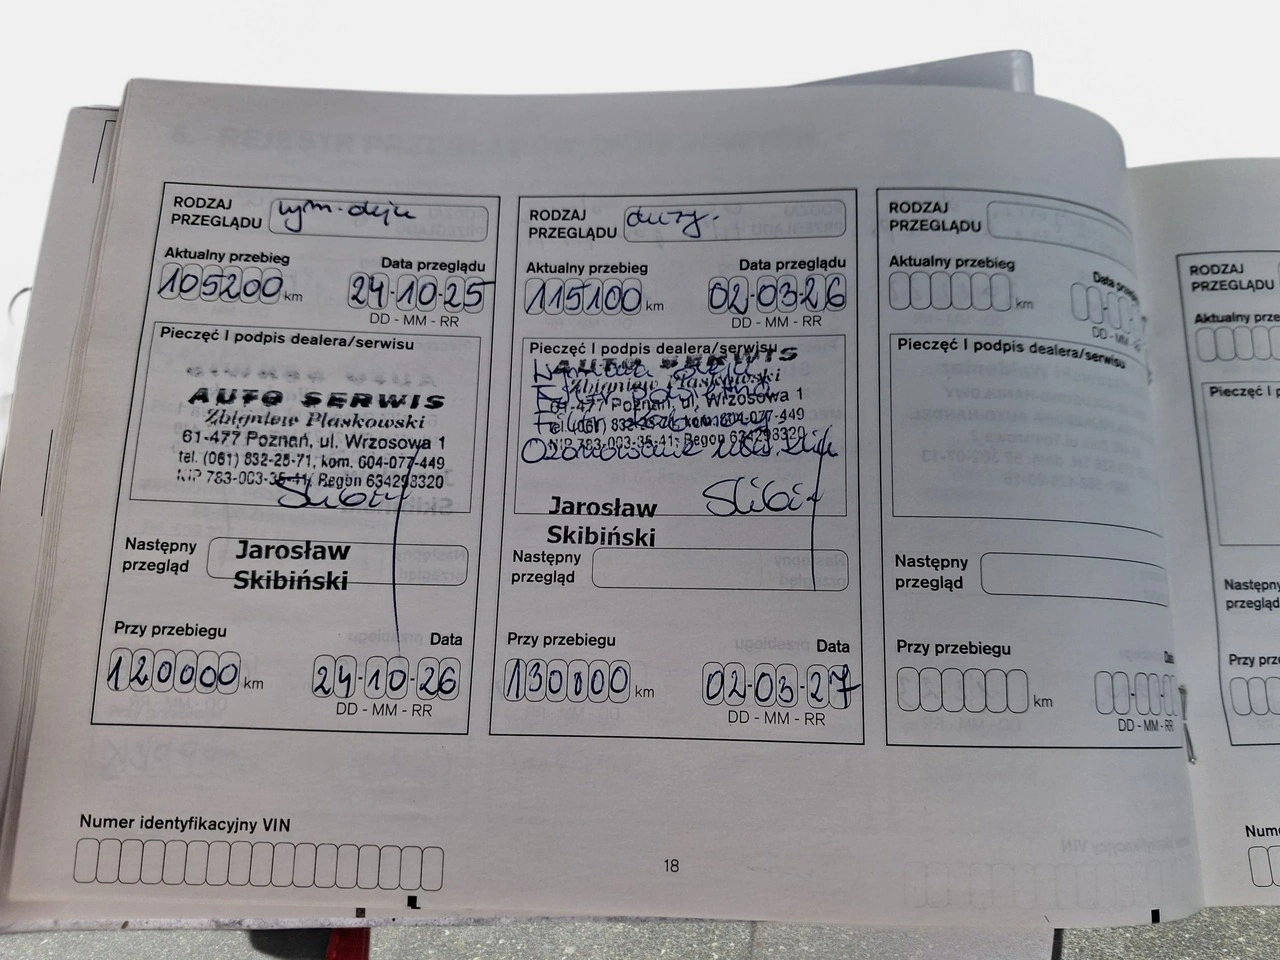 RODZAJ
PRZEGLĄDU
wym. oleju
Aktualny przebieg
Data przeglądu
105200 km
24-10-25
DD - MM - RR
Pieczęć I podpis dealera/serwisu
AUTO SERWIS
Zbigniew Płaskowski
61-477 Poznań, ul. Wrzosowa 1
tel. (061) 832-28-71, kom. 604-077-449
NIP 783-003-35-41, Regon 634298320
Następny
przegląd
Jarosław
Skibiński
Przy przebiegu
Data
120000 km
24-10-26
DD - MM - RR
RODZAJ
PRZEGLĄDU
duży.
Aktualny przebieg
Data przeglądu
115100 km
02-03-26
DD - MM - RR
Pieczęć I podpis dealera/serwisu
AUTO SERWIS
Zbigniew Płaskowski
61-477 Poznań, ul. Wrzosowa 1
tel. (061) 832-28-71, kom. 604-077-449
NIP 783-003-35-41, Regon 634298320
Ozonowanie
Jarosław
Skibiński
Następny
przegląd
Przy przebiegu
Data
130000 km
02-03-27
DD - MM - RR
RODZAJ
PRZEGLĄDU
Aktualny przebieg
Data
km
DD - MM
Pieczęć I podpis dealera/serwisu
Następny
przegląd
Przy przebiegu
km
DD - MM - RR
Numer identyfikacyjny VIN
18
RODZAJ
PRZEGLĄDU
Aktualny
Pieczęć I
Następny
przegląd
Przy